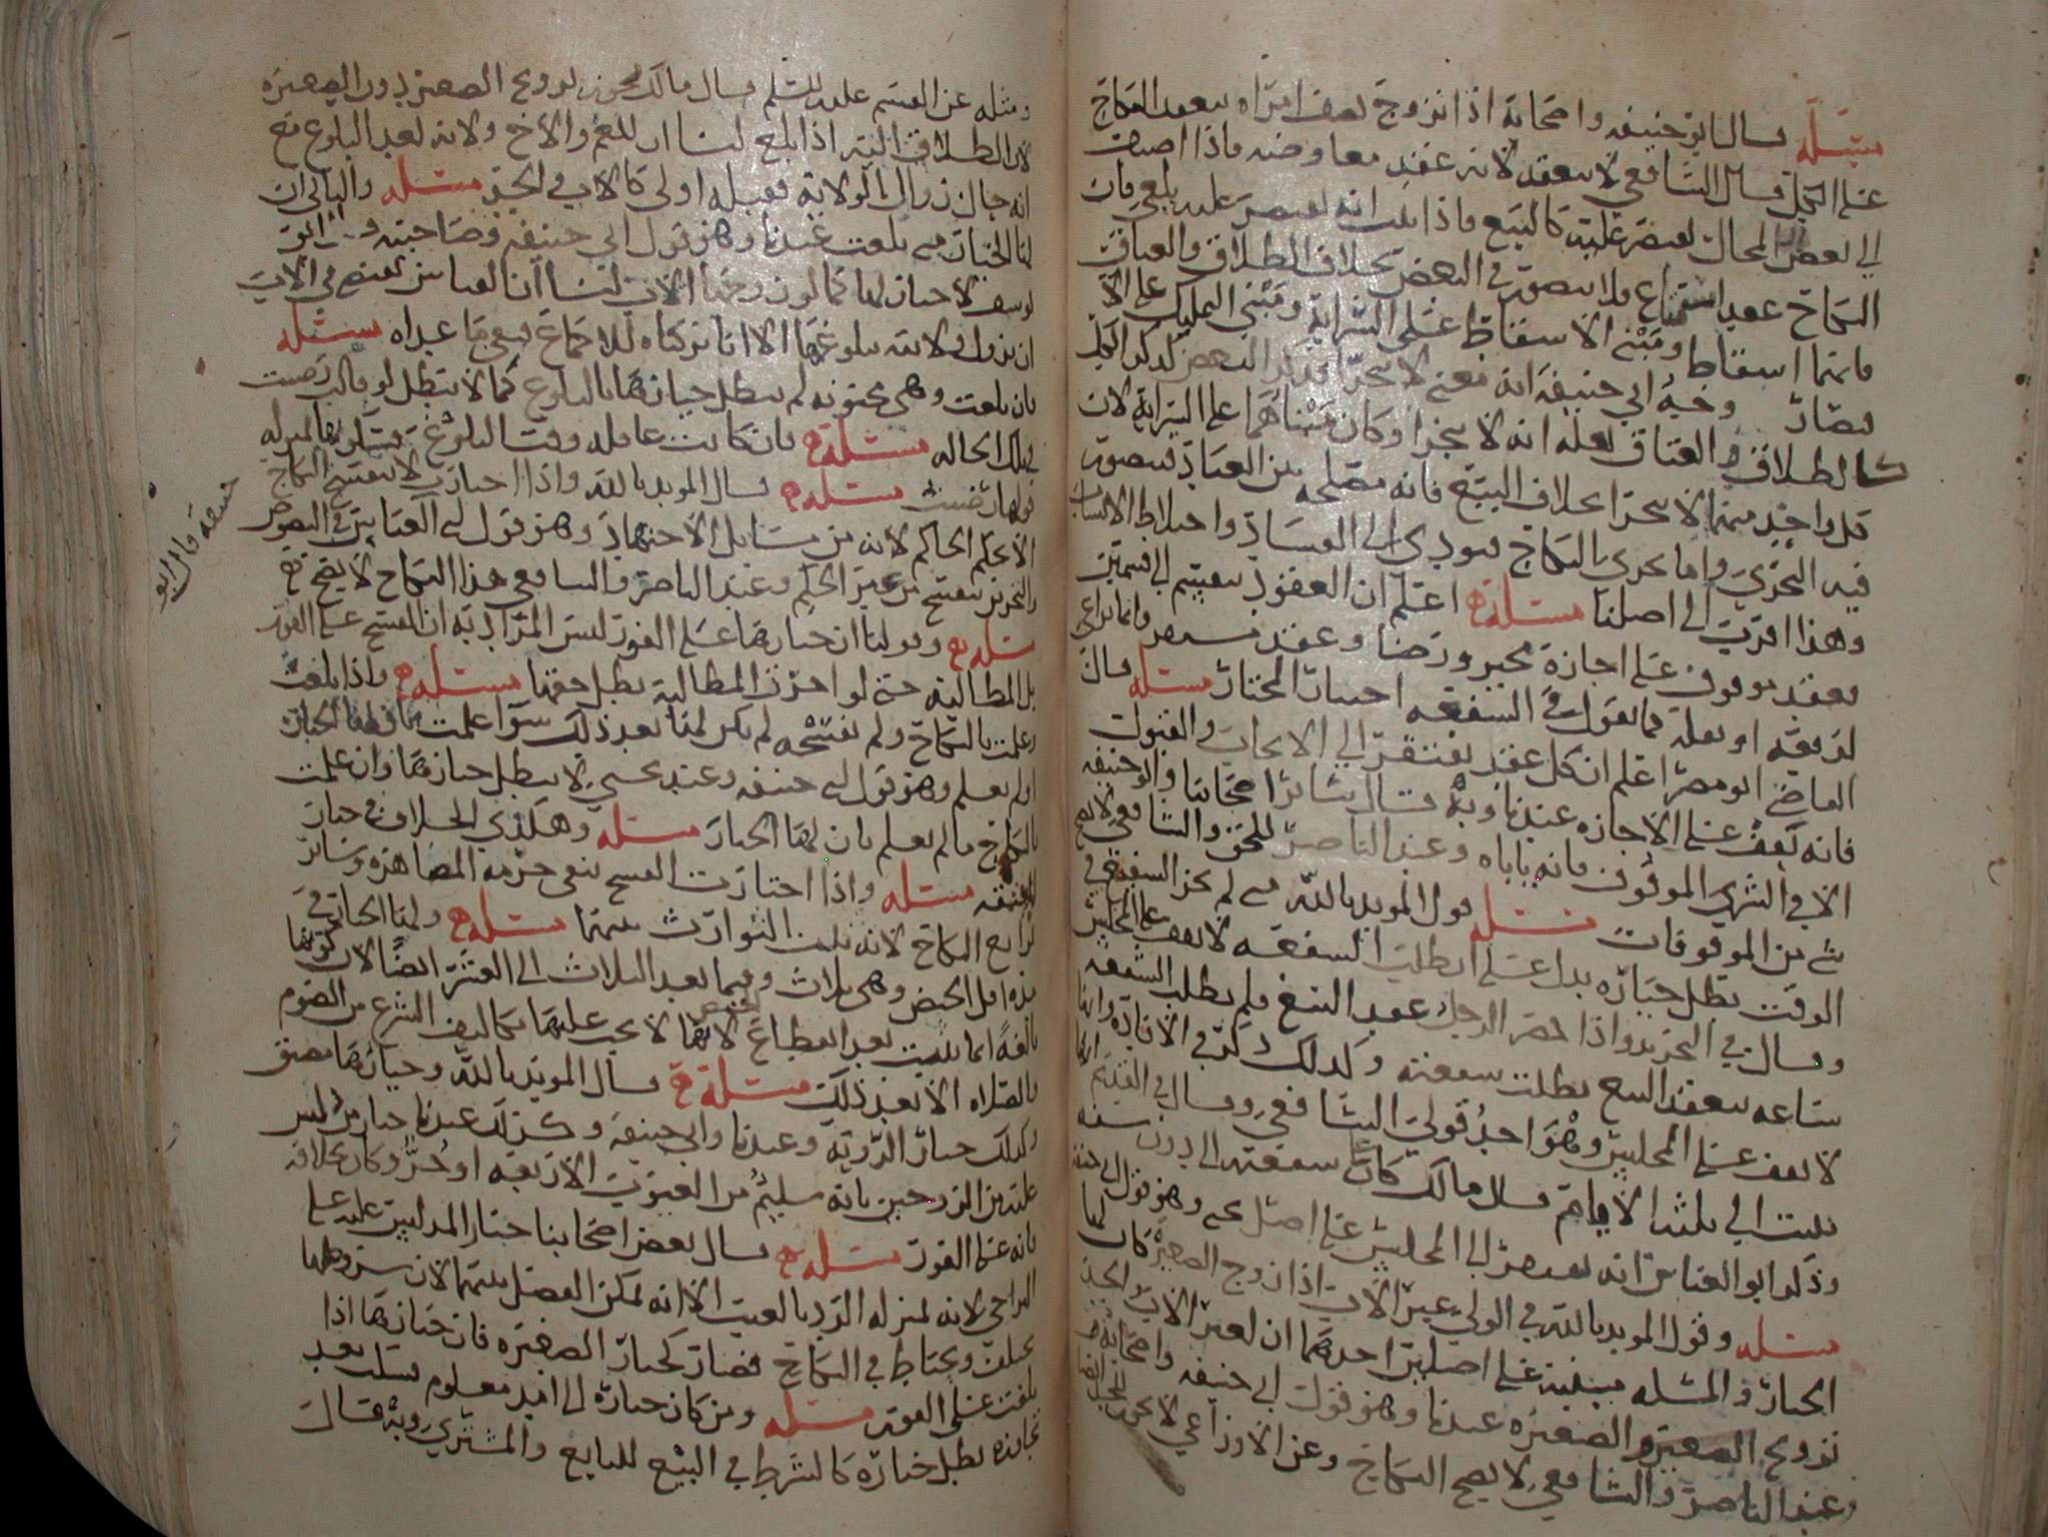 مسئلة قال ابو حنيفه واصحابه اذا تزوج نصف امراه ينعقد النكاح
على الكل قال الشافعي لا ينعقد لانه عقد معاوضه فاذا اضيف
الى بعض المحال اقتصر عليه كالبيع فاذا ثبت انه يقتصر عليه بلغى فان
النكاح عقد استمتاع ولا يتصور في البعض بخلاف الطلاق والعتاق
فانهما اسقاط ومبنى الاسقاط على السراية ومبنى التمليك على
فصار وجه ابي حنيفة انه معنى لا يتجزا فذكر البعض كذكر الكل
كالطلاق والعتاق لعله انه لا يتجزا وكان مبناهما على السراية لان
كل واحد منهما لا يتجزا بخلاف البيع فانه مصلحه بين العباد فيتصور
فيه التجزي واما التجزي بالنكاح فيودي الى الفساد واختلاط الانساب
وهذا اقرب الى اصلنا مسئلة اعلم ان العقود تنقسم الى قسمين
بعقد موقوف على اجازة مجيز ورضا وعقد وانما يراعى
كما نقول في السفعه اختيار المختار مسئله قال
القاضي ابو مضر اعلم ان كل عقد يفتقر الى الايجاب والقبول
فانه يقف على الاجازه عندنا وبه قال سائر اصحابنا وابو حنيفه
الا في الشرى الموقوف فانه ياباه وعند الناصر للحق والشافعي لا يصح
شي من الموقوفات مسئله قول المويد بالله متى لم يخبر الشفيع في
الوقت بطل خياره يدل على ان طلب السفعه لا يقف على المجلس
وقال في التحرير واذا حضر الرجل عقد البيع فلم يطلب الشفعه
ساعه يعقد البيع بطلت سفعته وكذلك ذكر في الافادة وانها
لا تقف على المجلس وهو احد قولي الشافعي وقال في القديم
تثبت الى ثلثة الايام قال مالك كان على سفعته الى دون سنه
وذكر ابو العباس انه يقتصر الى المجلس على اصل يحيى وهو قول ابي حنيفه
مسئله وقول المويد بالله في الولي غير الاب اذا زوج الصغيرة كان لها
الخيار والمسئله مبنية على اصلين احدهما ان لغير الاب والجد
تزويج الصغير والصغيره عندنا وهو قول ابي حنيفه واصحابه
وعند الناصر والشافعي لا يصح النكاح وعن الاوزاعي لا يجوز
ومثله عن القسم عليه السلم قال مالك يجوز تزويج الصغير دون الصغيره
لان الطلاق اليه اذا بلغ لنا ان للعم والاخ ولاية بعد البلوغ مع
انه حال زوال الولاية فقبله اولى كالاب والجد مسئله والثاني ان
لها الخيار متى بلغت عندنا وهو قول ابي حنيفه وصاحبيه و ابو
يوسف لا خيار لها كما لو زوجها الاب لنا ان القياس يقتضي في الاب
ان تزول ولايته ببلوغها الا انا تركناه للاجماع فبقي ما عداه مسئله
فان بلغت وهي مجنونه لم يبطل خيارها بالبلوغ كما لا يبطل لو قالت رضيت
في تلك الحاله مسئلة فان كانت عاقله وقت البلوغ
قولها رضيت مسئلة قال المويد بالله واذا اختارت لا ينفسخ النكاح
الا بحكم الحاكم لانه من مسايل الاجتهاد وهو قول ابي العباس في النصوص
والتحرير ينفسخ من غير الحكم وعند الناصر والشافعي هذا النكاح لا يصح
مسئلة وقولنا ان خيارها على الفور ليس المراد به ان الفسخ على الفور
بل المطالبة حتى لو اخرت المطالبة بطل حقها مسئلة واذا بلغت
وعلمت بالنكاح ولم تفسخه لم يكن لها بعد ذلك سوا علمت بان لها الخيار
او لم تعلم وهو قول ابي حنيفه وعند يحيى لا يبطل خيارها وان علمت
بالنكاح ما لم تعلم بان لها الخيار مسئله وهكذى الخلاف في خيار
المعتقه مسئله واذا اختارت الفسخ تبقى حرمة المصاهرة وسائر
توابع النكاح لانه يثبت التوارث بينهما مسئلة ولها الخيار في
مدة اقل الحيض وهي ثلاث وفيما بعد الثلاث الى العشر ايضا لان كونها
بالغة انما يثبت بعد انقطاع الحيض لانها لا يجب عليها تكاليف الشرع من الصوم
والصلاه الا بعد ذلك مسئلة قال المويد بالله وخيارها مضيق
وكذلك خيار الروية وعندنا وابي حنيفة وكذلك عندنا خيار من
عليه من الزوجين بانه سليم من العيوب الاربعه او حر وكان بخلافه
فانه على الفور مسئلة قال بعض اصحابنا خيار المدلس عليه على
التراخي لانه بمنزله الرد بالعيب الا انه يمكن الفصل بينهما لان
يحلف ويحتاط في النكاح فصار كخيار الصغيره فان خيارها اذا
بلغت على الفور مسئله ومن كان خياره الى امد معلوم فسكت بعد
تجاوزه بطل خياره كالشرط في البيع للبايع والمشتري وبه قال
حنيفة قال ابو